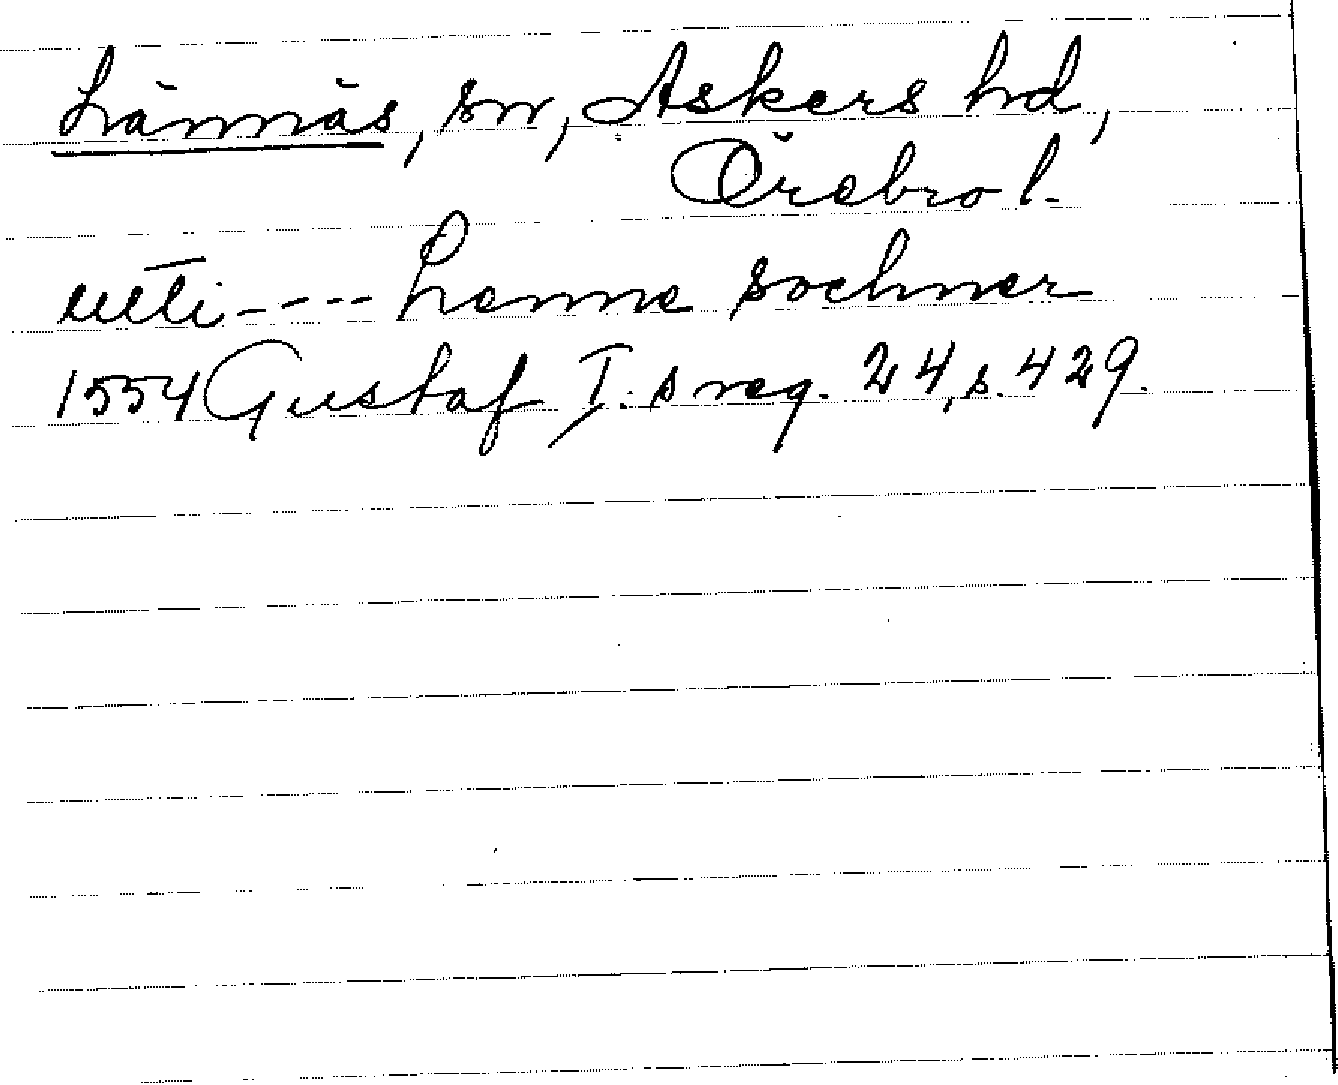 Lännäs, sn, Askers hd,
Örebro l.
utti --- Lenne sochner
1554 Gustaf I:s reg. 24, s. 429.